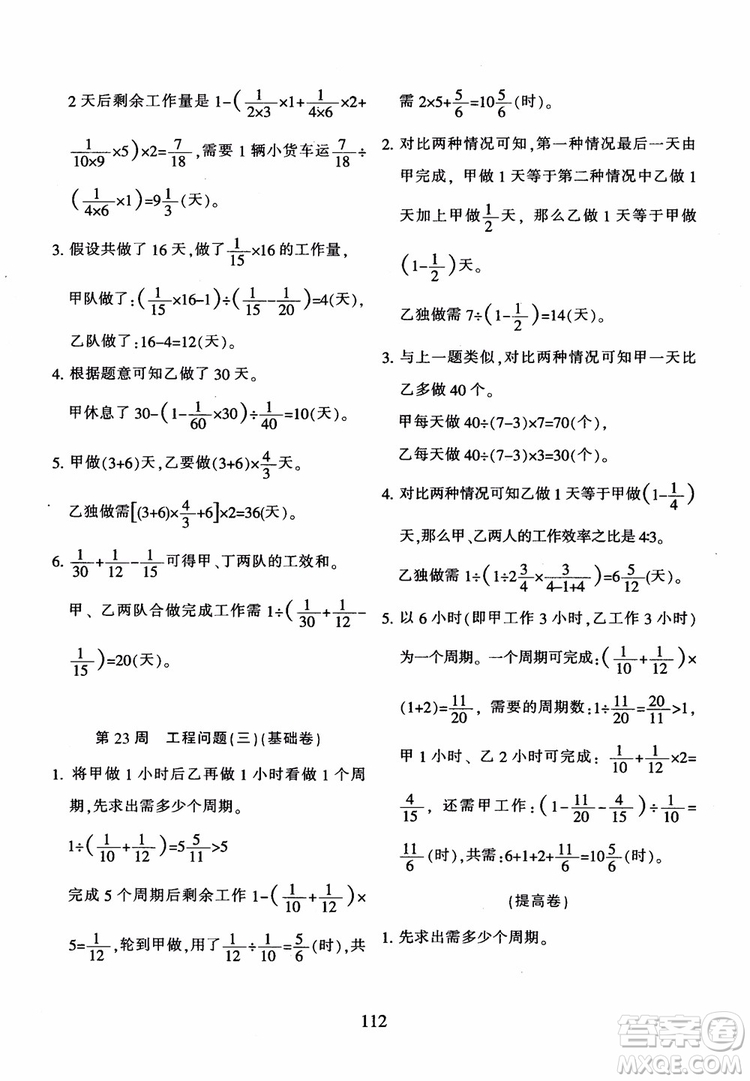 2 天后剩余工作量是 1-(1/(2×3)×1+1/(4×6)×2+
1/(10×9)×5)×2=7/18,需要 1 辆小货车运7/18÷
(1/(4×6)×1)=9 1/3(天)。
3. 假设共做了 16 天,做了1/15×16的工作量,
甲队做了:(1/15×16-1)÷(1/15-1/20)=4(天),
乙队做了:16-4=12(天)。
4. 根据题意可知乙做了 30 天。
甲休息了 30-(1-1/60×30)÷1/40=10(天)。
5. 甲做(3+6)天,乙要做(3+6)×4/3天。
乙独做需[(3+6)×4/3+6]×2=36(天)。
6. 1/30+1/12-1/15可得甲、丁两队的工效和。
甲、乙两队合做完成工作需 1÷(1/30+1/12-
1/15)=20(天)。
第 23 周 工程问题(三)(基础卷)
1. 将甲做 1 小时后乙再做 1 小时看做 1 个周
期,先求出需多少个周期。
1÷(1/10+1/12)=5 5/11>5
完成 5 个周期后剩余工作 1-(1/10+1/12)×
5=1/12,轮到甲做,用了1/12÷1/10=5/6(时),共
需 2×5+5/6=10 5/6(时)。
2. 对比两种情况可知,第一种情况最后一天由
甲完成，甲做 1 天等于第二种情况中乙做 1
天加上甲做1/2天，那么乙做1天等于甲做
(1-1/2)天。
乙独做需 7÷(1-1/2)=14(天)。
3. 与上一题类似,对比两种情况可知甲一天比
乙多做 40 个。
甲每天做 40÷(7-3)×7=70(个),
乙每天做 40÷(7-3)×3=30(个)。
4. 对比两种情况可知乙做 1 天等于甲做(1-1/4)
天,那么甲、乙两人的工作效率之比是 4∶3。
乙独做需 1÷(1÷2 3/4×3/(4-1+4))=6 5/12(天)。
5. 以 6 小时(即甲工作 3 小时,乙工作 3 小时)
为一个周期。一个周期可完成:(1/10+1/12)×
(1+2)=11/20,需要的周期数:1÷11/20=20/11>1,
甲 1 小时、乙 2 小时可完成:1/10+1/12×2=
4/15，还需甲工作:(1-11/20-4/15)÷1/10=
11/6(时),共需:6+1+2+11/6=10 5/6(时)。
(提高卷)
1. 先求出需多少个周期。
112
答案圈
MXQE.COM